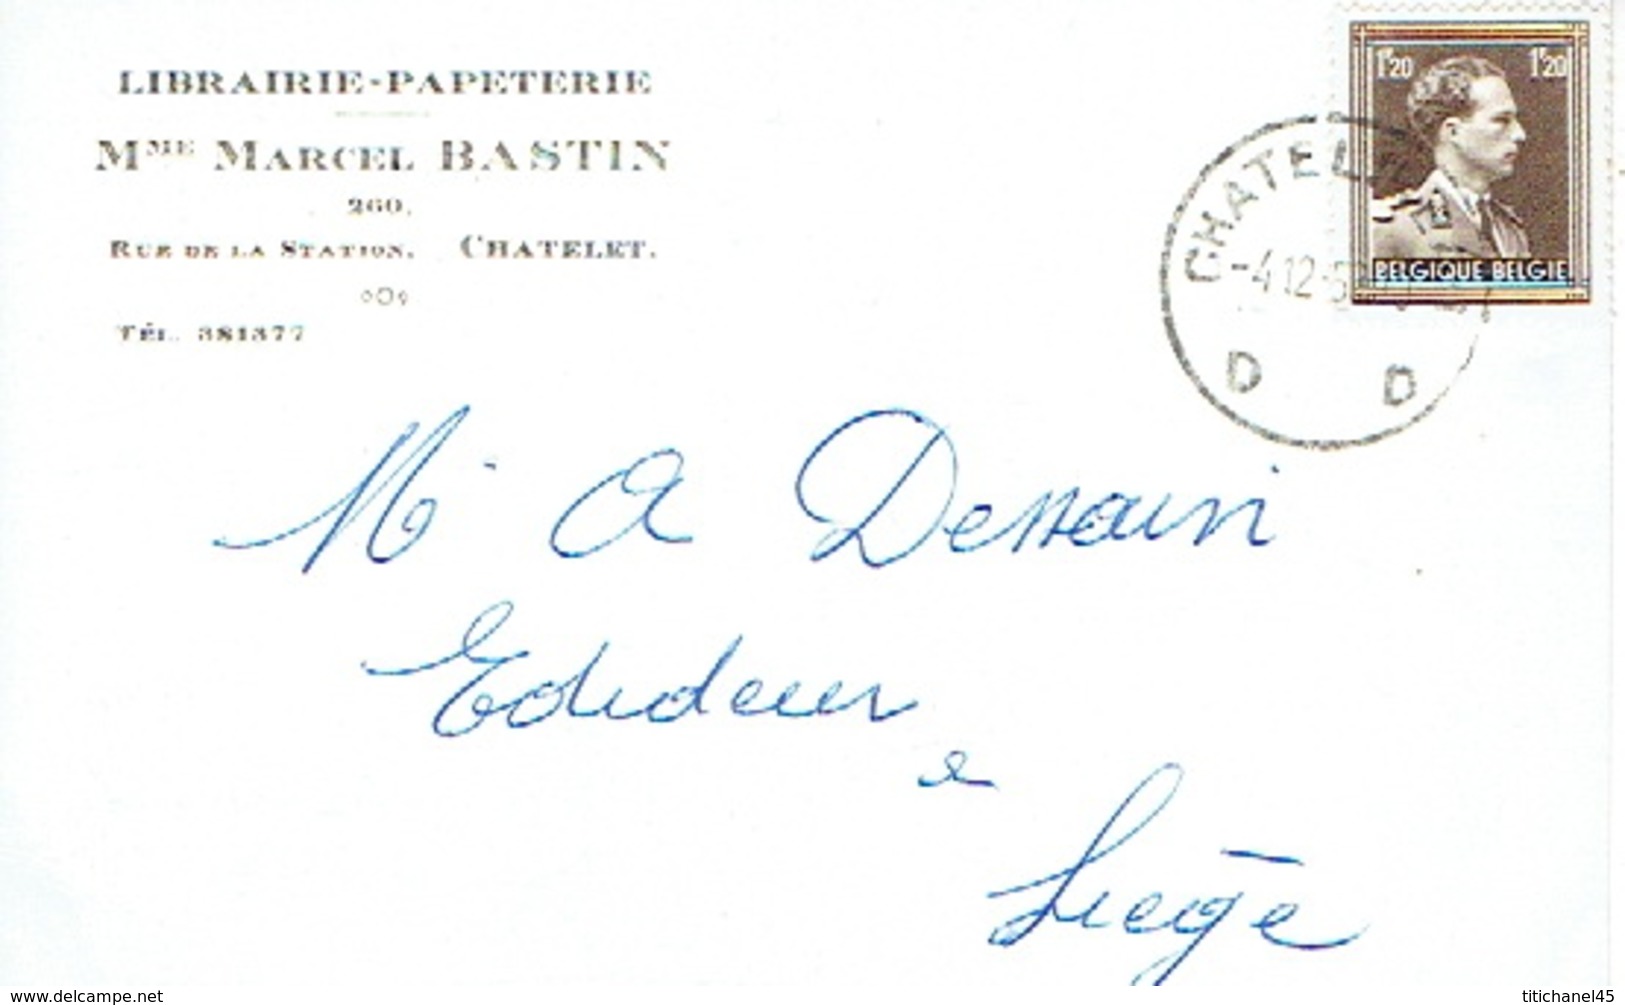 LIBRAIRIE-PAPETERIE
MME MARCEL BASTIN
260,
RUE DE LA STATION, CHATELET.
TÉL. 381377
1F20 1F20
BELGIQUE BELGIE
CHATELET
-4.12-5
D D
Mr A Dessain
Editeur
a
Liège
www.delcampe.net
titichanel45